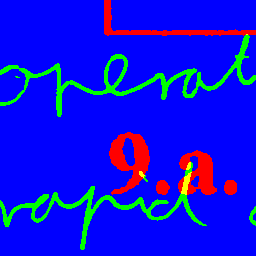 operat
9.a.
rapid